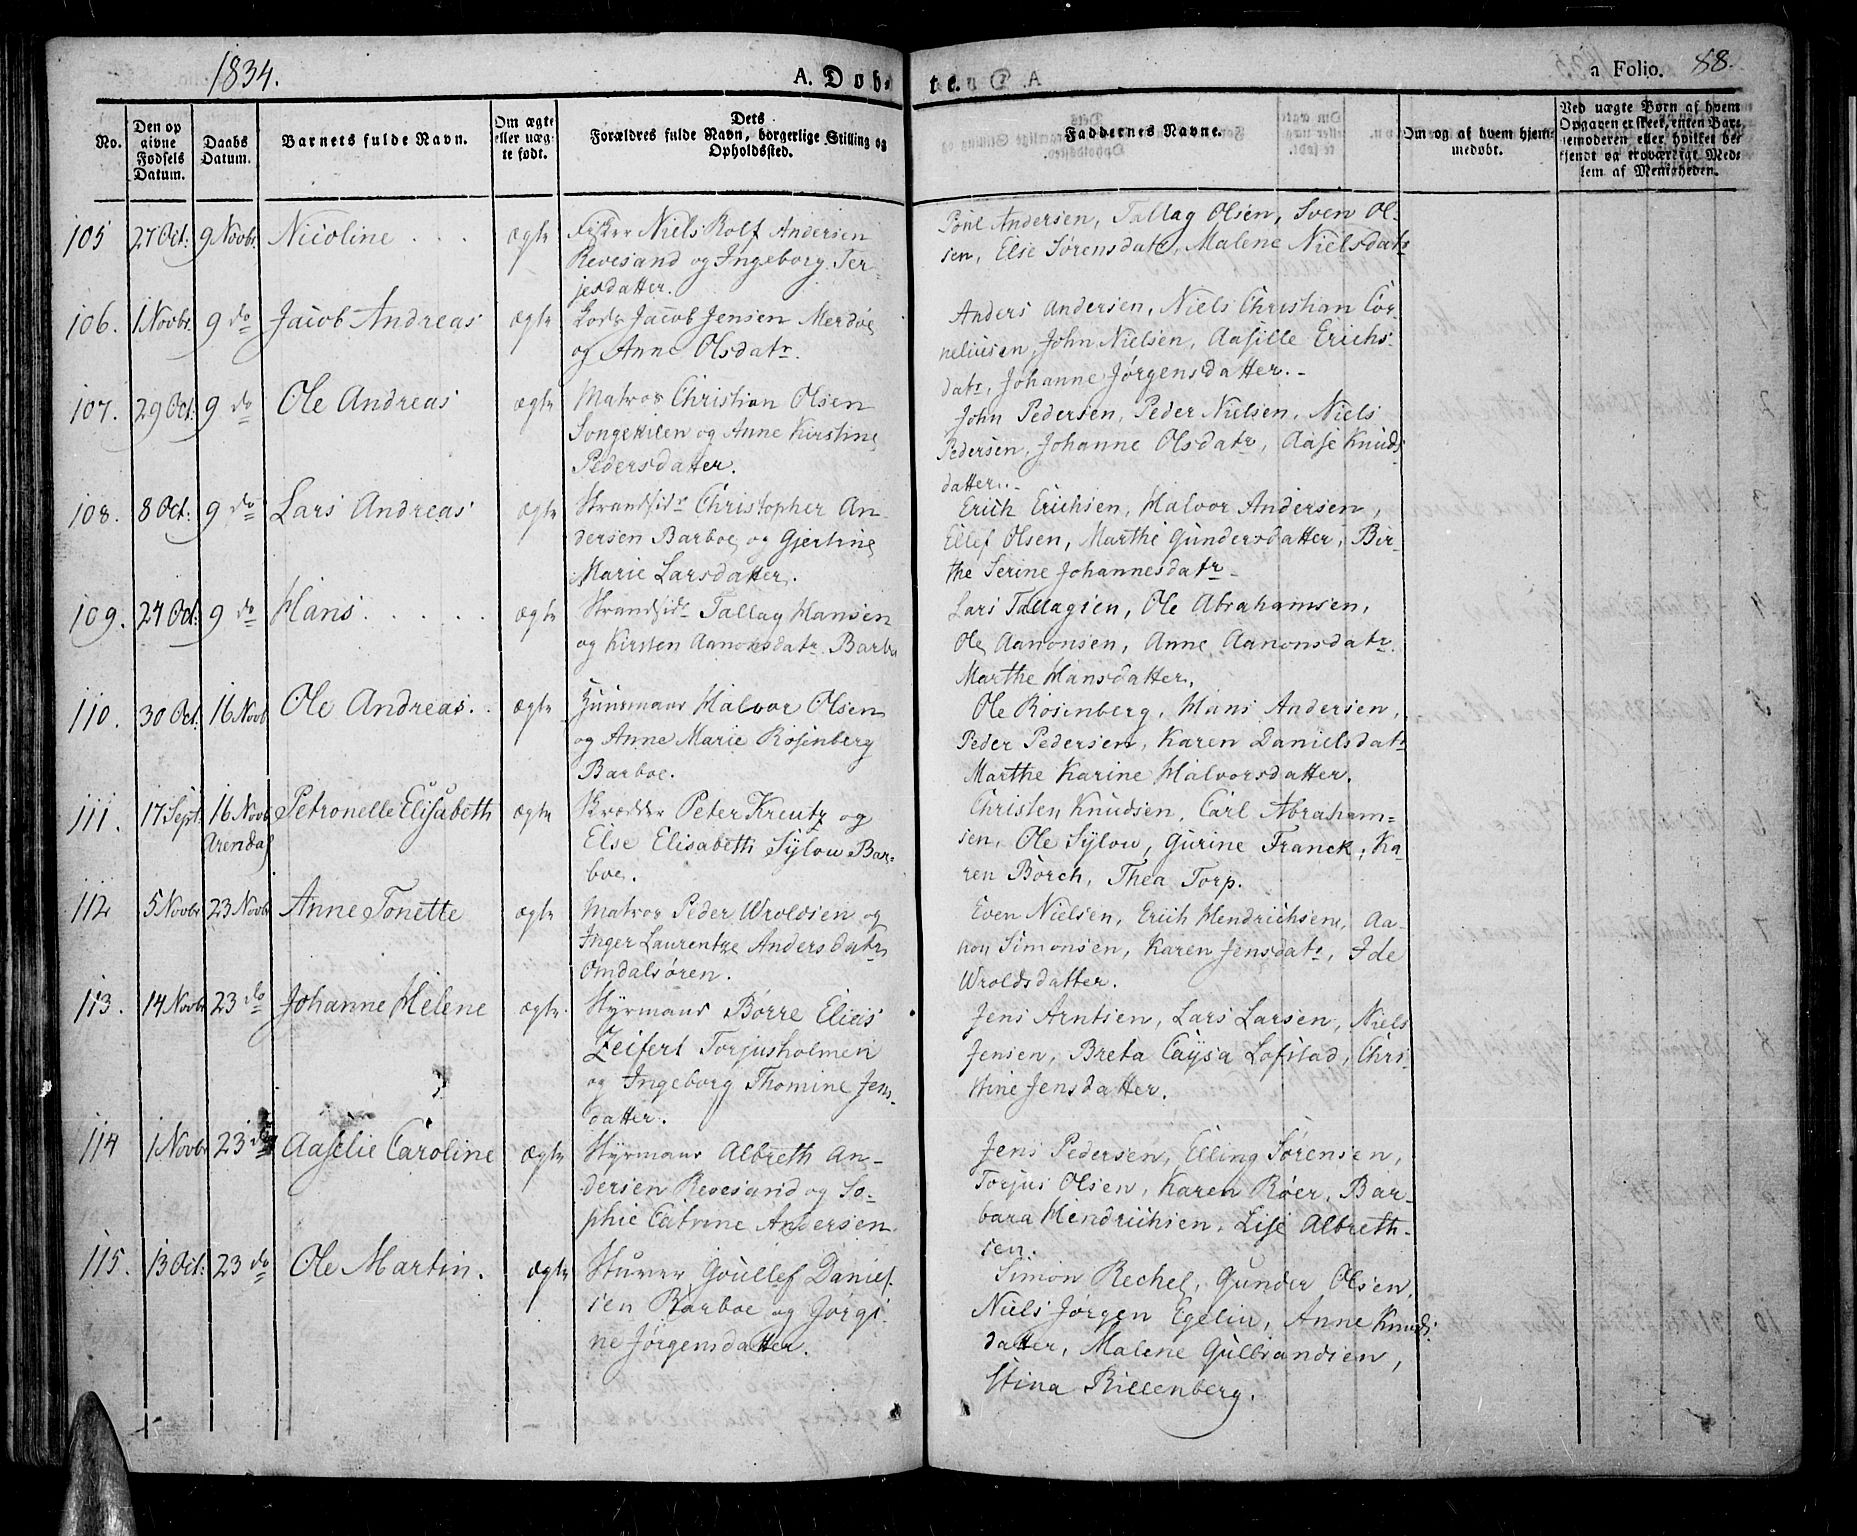 1834.
A. Døb-
te.
a Folio. 88.
No.
Den op
givne
Fødsels
Datum.
Daabs
Datum.
Barnets fulde Navn.
Om ægte
eller uæg-
te født.
Dets
Forældres fulde Navn, borgerlige Stilling og
Opholdssted.
Faddernes Navne.
Om og af hvem hjem-
medøbt.
Ved uægte Børn af hvem
Opgaven er skeet, enten Bar-
nemoderen eller hvilket be-
kjendt og troværdigt Med-
lem af Menigheden.
105 27 Oct: 9 Novbr. Nicoline . . . ægte Fisker Niels Rolf Andersen
Revesand og Ingeborg Ter-
jesdatter.
Poul Andersen, Tallag Olsen, Sven Ol-
sen, Else Sørensdatr, Malene Nielsdatr
106. 1 Novbr. 9 do Jacob Andreas ægte Lods Jacob Jensen Merdøe
og Anne Olsdatr.
Anders Andersen, Niels Christian Cor-
neliusen, John Nielsen, Aasille Erichs-
datr, Johanne Jørgensdatter.
107. 29 Oct: 9 do Ole Andreas ægte Matros Christian Olsen
Songekilen og Anne Kirstine
Pedersdatter.
John Pedersen, Peder Nielsen, Niels
Pedersen, Johanne Olsdatr, Aase Knuds-
datter.
108. 8 Oct: 9 do Lars Andreas ægte Strandsidr Christopher An-
dersen Barboe og Gjertine
Marie Larsdatter.
Erich Erichsen, Halvor Andersen,
Ellef Olsen, Marthe Gundersdatter, Bir-
the Serine Johannesdatr
109. 24 Oct: 9 do Hans . . . . . ægte Strandsidr Tallag Hansen
og Kirsten Aanonsdatr Barbo
Lars Tallagsen, Ole Abrahamsen,
Ole Aanonsen, Anne Aanonsdatr.
Marthe Hansdatter.
110. 30 Oct. 16 Novb. Ole Andreas. . ægte Huusmand Halvor Olsen
og Anne Marie Rosenberg
Barboe.
Ole Rosenberg, Hans Andersen,
Peder Pedersen, Karen Danielsdatr
Marthe Karine Halvorsdatter.
111. 17 Sept. 16 Novb. Petronelle Elisabeth ægte Skrædder Peter Kreutz og
Arendal
Else Elisabeth Sylow Bar-
boe.
Christen Knudsen, Carl Abraham-
sen, Ole Sylow, Gurine Franck, Ka-
ren Borch, Thea Torp.
112 5 Novbr 23 Novbr Anne Tonette ægte Matros Peder Wroldsen og
Inger Laurentze Andersdatr
Omdalsøren.
Even Nielsen, Erich Hendrichsen, Aa-
non Simonsen, Karen Jensdatr, Ide
Wroldsdatter.
113. 14 Novbr 23 do Johanne Helene ægte. Styrmand Børre Elias
Zeifert Torjusholmen
og Ingeborg Thomine Jens-
datter.
Jens Arntsen, Lars Larsen, Niels
Jensen, Breta Caysa Lofstad, Chri-
stine Jensdatter.
114 1 Novbr 23 do Aaselie Caroline ægte Styrmand Albreth An-
dersen Revesand og So-
phie Catrine Andersen.
Jens Pedersen, Elling Sørensen,
Torjus Olsen, Karen Røer, Bar-
bara Hendrichsen, Lise Albreth-
sen.
115. 13 Oct: 23 do Ole Martin. ægte Stuver Goullef Daniel-
sen Barboe og Jørgi-
ne Jørgensdatter.
Simon Rechel, Gunder Olsen,
Niels Jørgen Egelin, Anne Knuds-
datter, Malene Gulbrandsen,
Stina Billenberg.